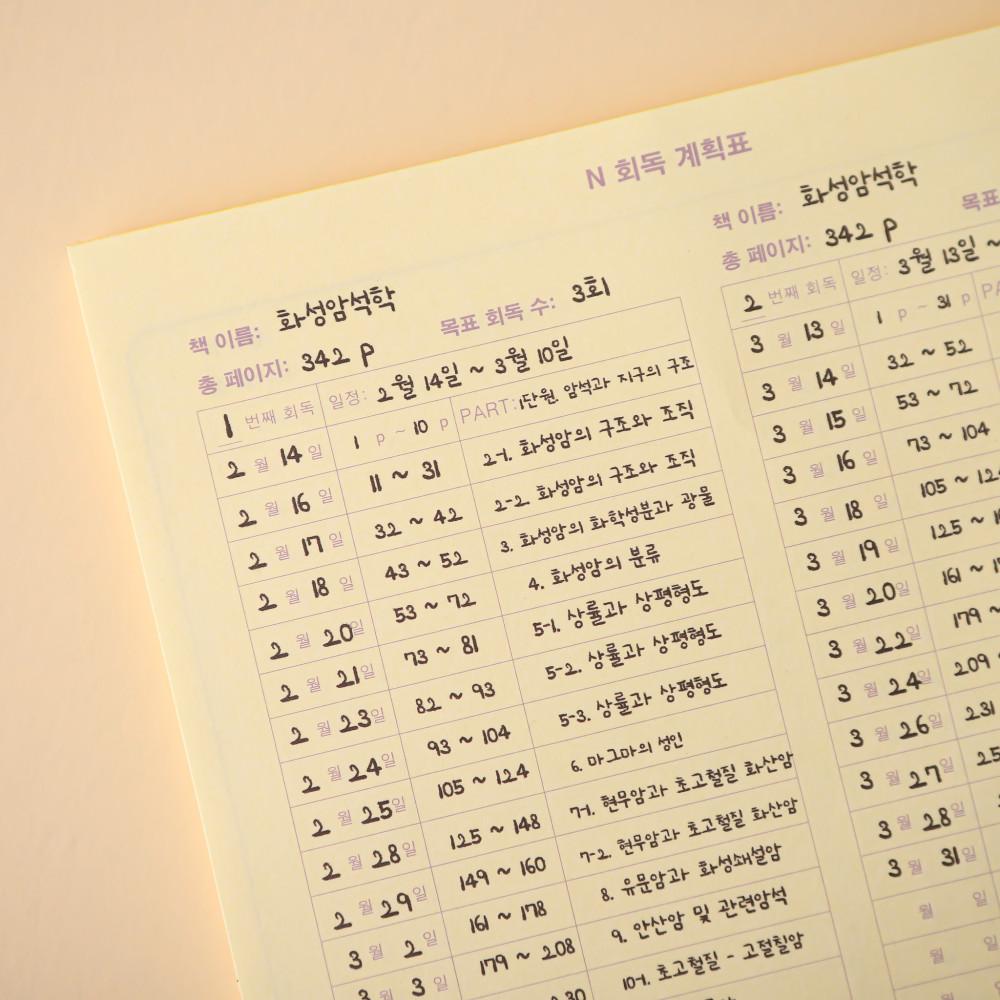 N 회독 계획표
책 이름: 화성암석학 목표 회독 수: 3회
총 페이지: 342 p
1 번째 회독 일정: 2월 14일 ~ 3월 10일
2 월 14 일 1 p ~ 10 p PART: 1단원. 암석과 지구의 구조
2 월 16 일 11 ~ 31 2-1. 화성암의 구조와 조직
2 월 17 일 32 ~ 42 2-2. 화성암의 구조와 조직
2 월 18 일 43 ~ 52 3. 화성암의 화학성분과 광물
2 월 20일 53 ~ 72 4. 화성암의 분류
2 월 21일 73 ~ 81 5-1. 상률과 상평형도
2 월 23일 82 ~ 93 5-2. 상률과 상평형도
2 월 24일 93 ~ 104 5-3. 상률과 상평형도
2 월 25일 105 ~ 124 6. 마그마의 성인
2 월 28일 125 ~ 148 7-1. 현무암과 초고철질 화산암
2 월 29일 149 ~ 160 7-2. 현무암과 초고철질 화산암
3 월 2 일 161 ~ 178 8. 유문암과 화성쇄설암
3 월 3 일 179 ~ 208 9. 안산암 및 관련암석
10-1. 초고철질 - 고철칠암
책 이름: 화성암석학 목표
총 페이지: 342 p
2 번째 회독 일정: 3월 13일 ~
3 월 13 일 1 p ~ 31 p
3 월 14 일 32 ~ 52
3 월 15 일 53 ~ 72
3 월 16 일 73 ~ 104
3 월 18 일 105 ~
3 월 19 일 125 ~
3 월 20일 161 ~
3 월 22일 179 ~
3 월 24일 209
3 월 26일 231
3 월 27일
3 월 28일
3 월 31일
월 일
월 일